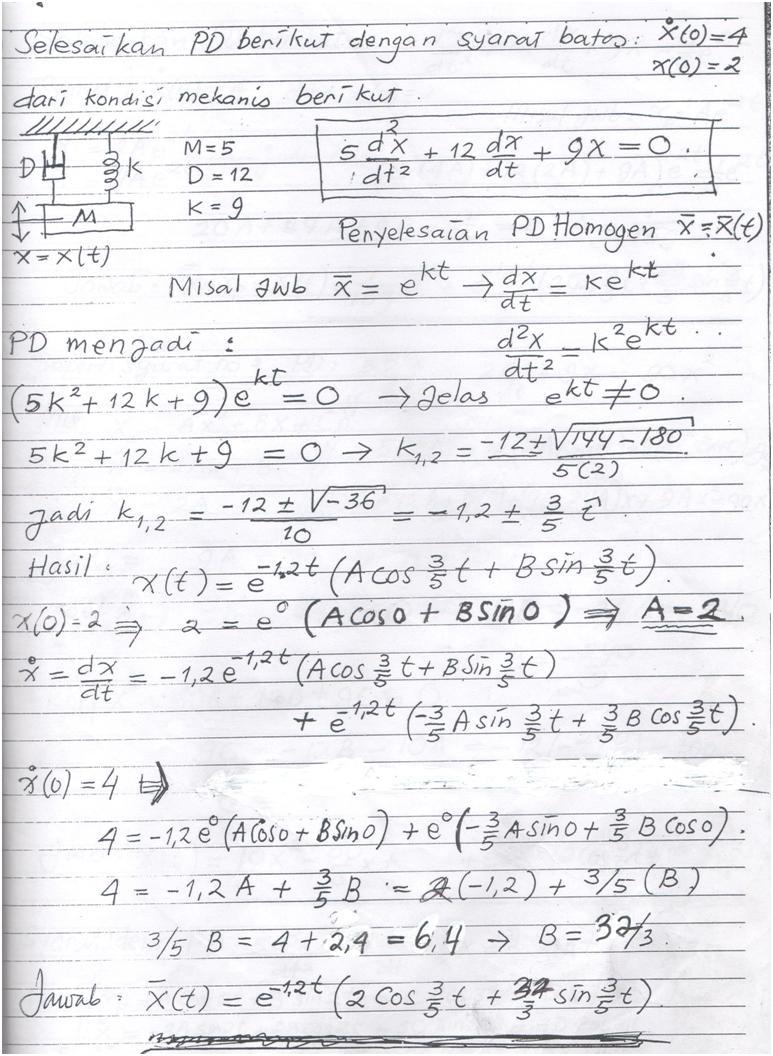 Selesaikan PD berikut dengan syarat batas: ẋ(0)=4
x(0)=2
dari kondisi mekanis berikut.
D K M
x = x(t)
M=5
D=12
K=9
5 d²x/dt² + 12 dx/dt + 9x = 0
Penyelesaian PD Homogen x̄ = x̄(t)
Misal jwb x̄ = e^kt → dx/dt = ke^kt
PD menjadi : d²x/dt² = k²e^kt
(5k²+12k+9)e^kt = 0 → Jelas e^kt ≠ 0.
5k²+12k+9 = 0 → k₁,₂ = -12±√144-180 / 5(2)
Jadi k₁,₂ = -12 ± √-36 / 10 = -1,2 ± 3/5 i.
Hasil : x(t) = e^-1,2t (A cos 3/5 t + B sin 3/5 t).
x(0)=2 ⇒ 2 = e⁰ (A cos 0 + B sin 0) ⇒ A=2.
ẋ = dx/dt = -1,2e^-1,2t (A cos 3/5 t + B sin 3/5 t)
+ e^-1,2t (-3/5 A sin 3/5 t + 3/5 B cos 3/5 t).
ẋ(0)=4 ⇒
4 = -1,2e⁰(A cos 0 + B sin 0) + e⁰(-3/5 A sin 0 + 3/5 B cos 0).
4 = -1,2A + 3/5 B = 2(-1,2) + 3/5 (B)
3/5 B = 4+2,4 = 6,4 → B = 32/3.
Jawab : x̄(t) = e^-1,2t (2 cos 3/5 t + 32/3 sin 3/5 t).